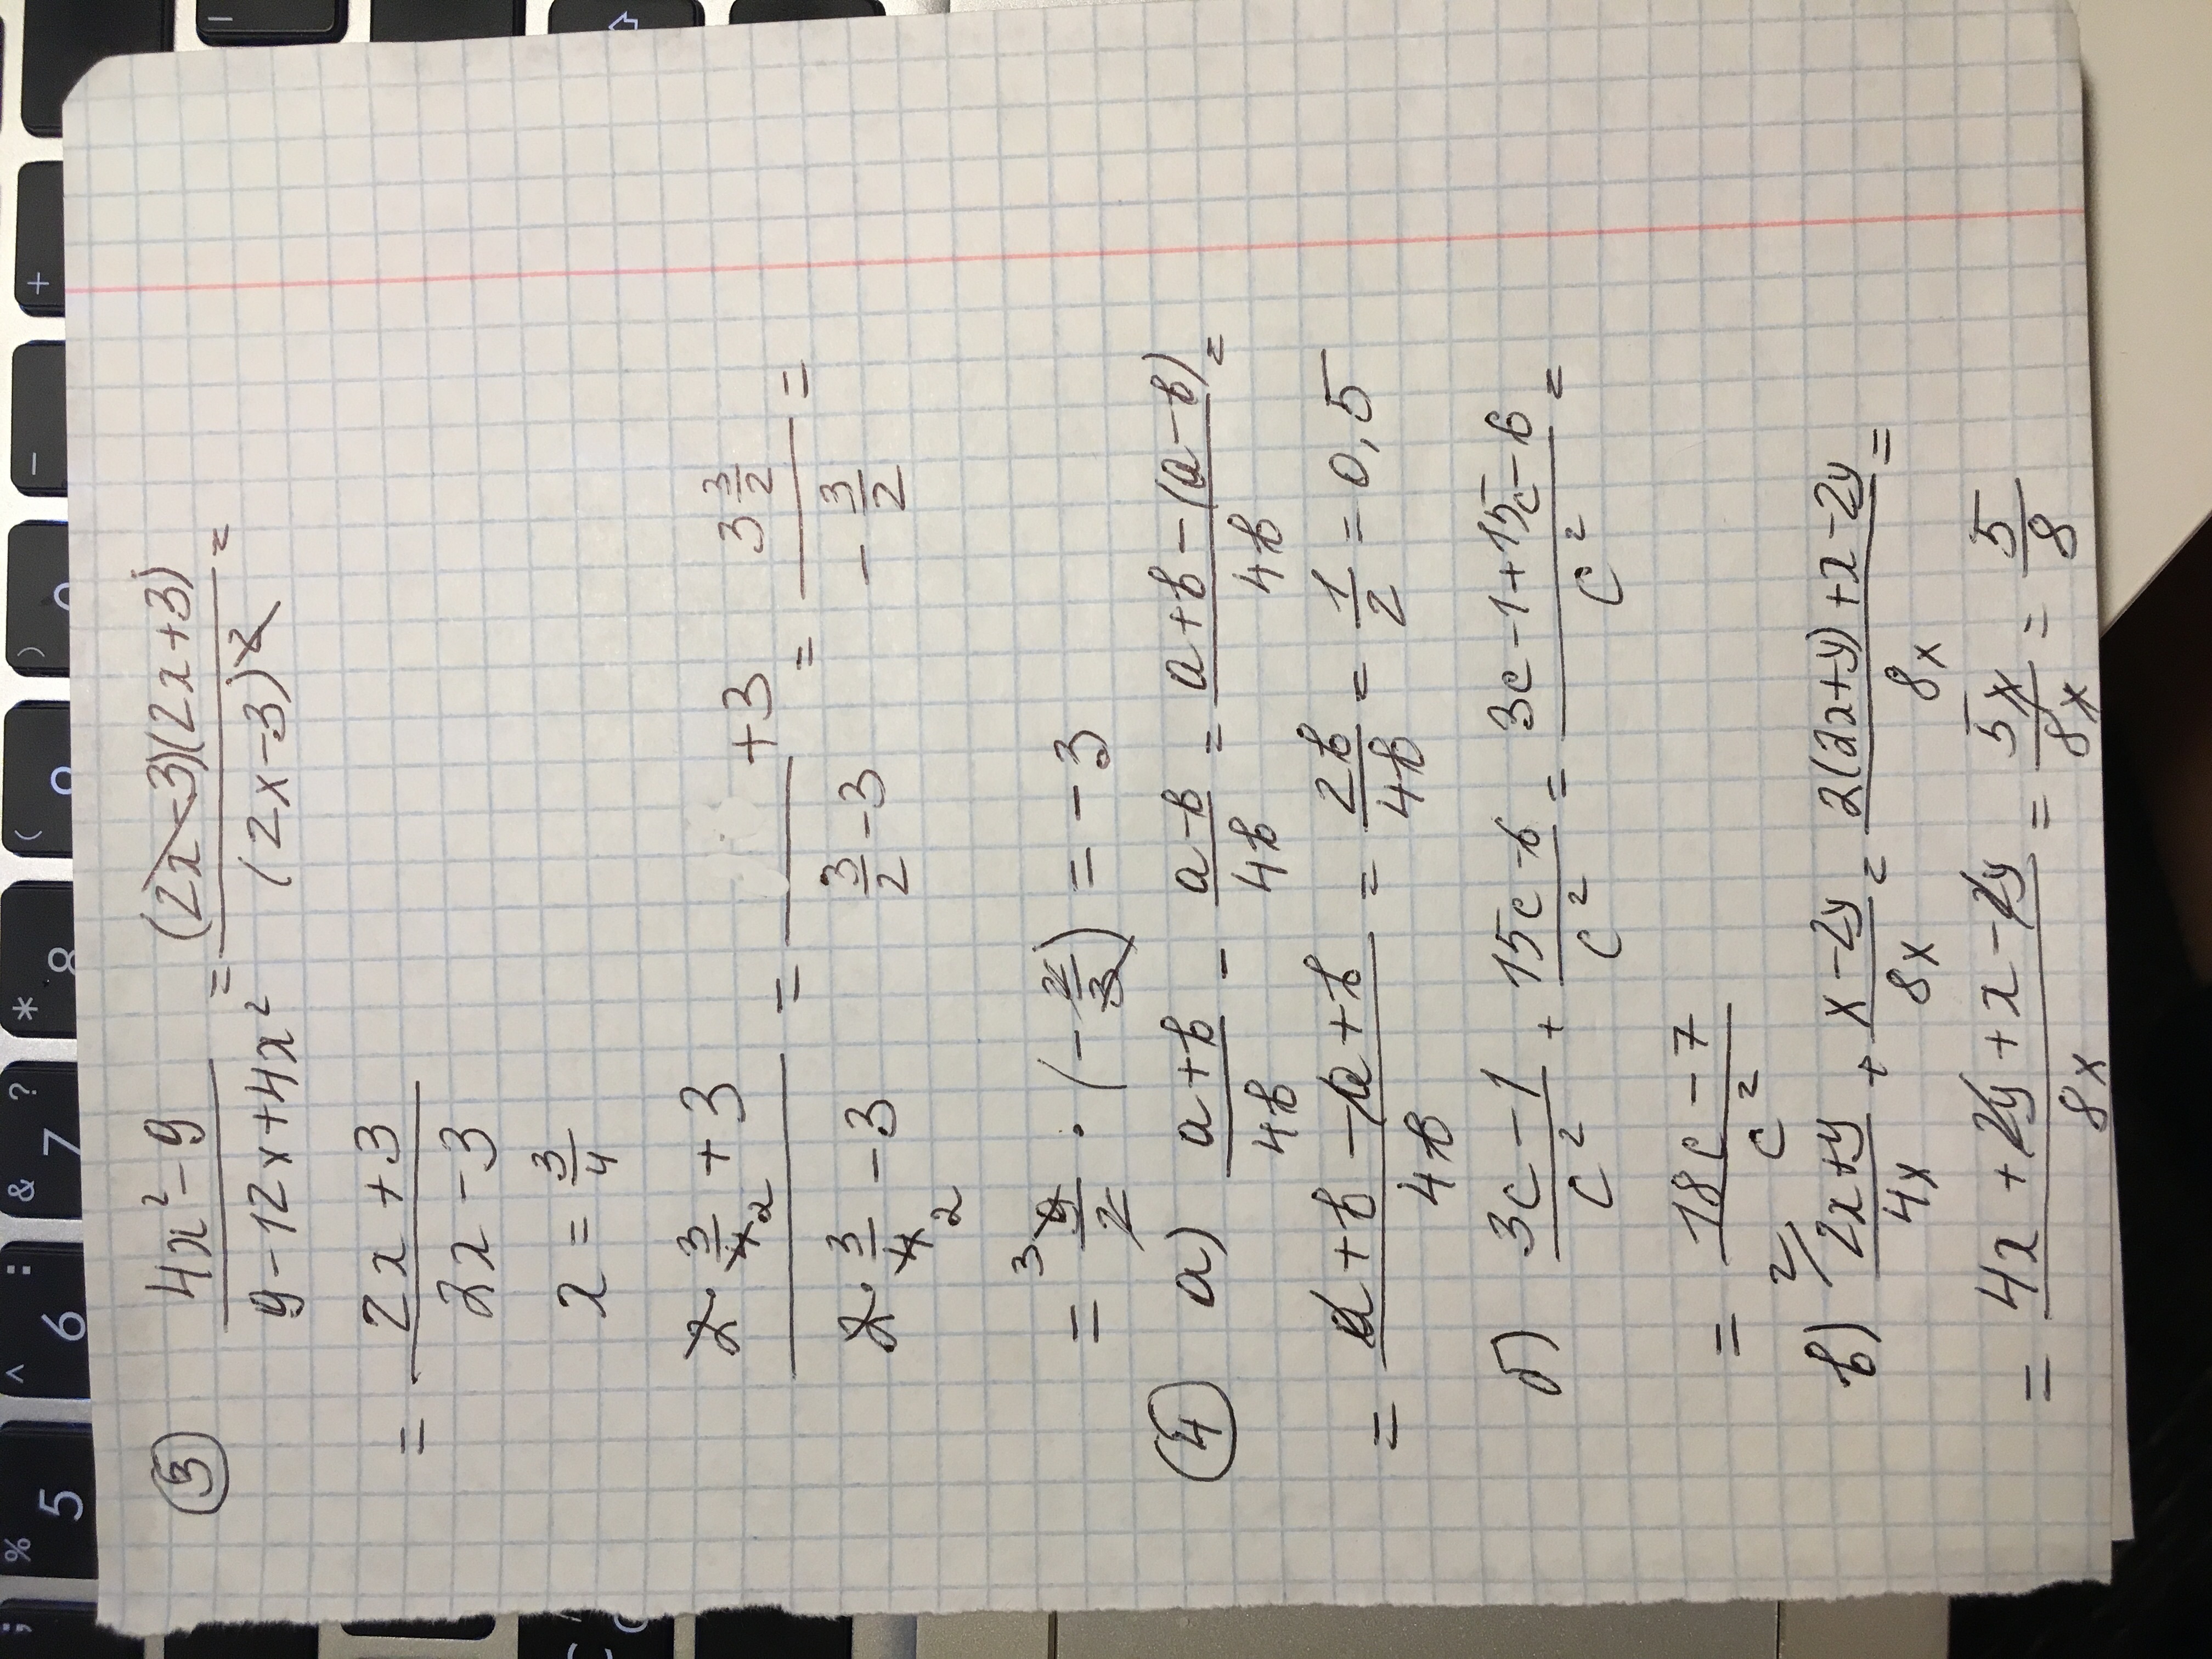 ③ (4x² - 9)/(9 - 12x + 4x²) = ((2x - 3)(2x + 3))/((2x - 3)²) =
= (2x + 3)/(2x - 3)
x = 3/4
(2 · 3/4 2 + 3)/(2 · 3/4 2 - 3) = ( + 3)/(3/2 - 3) = (3 3/2)/(- 3/2) =
= 3 9/2 · (- 2/3) = - 3
④ а) (a + в)/4в - (a - в)/4в = (a + в - (a - в))/4в =
= (a + в - a + в)/4в = 2в/4в = 1/2 = 0,5
б) (3c - 1)/c² + (15c - 6)/c² = (3c - 1 + 15c - 6)/c² =
= (18c - 7)/c²
в) 2/ (2x + y)/4x + (x - 2y)/8x = (2(2x + y) + x - 2y)/8x =
= (4x + 2y + x - 2y)/8x = 5x/8x = 5/8
+
-
)
(
9
*
8
&
7
?
^
6
:
%
5
;